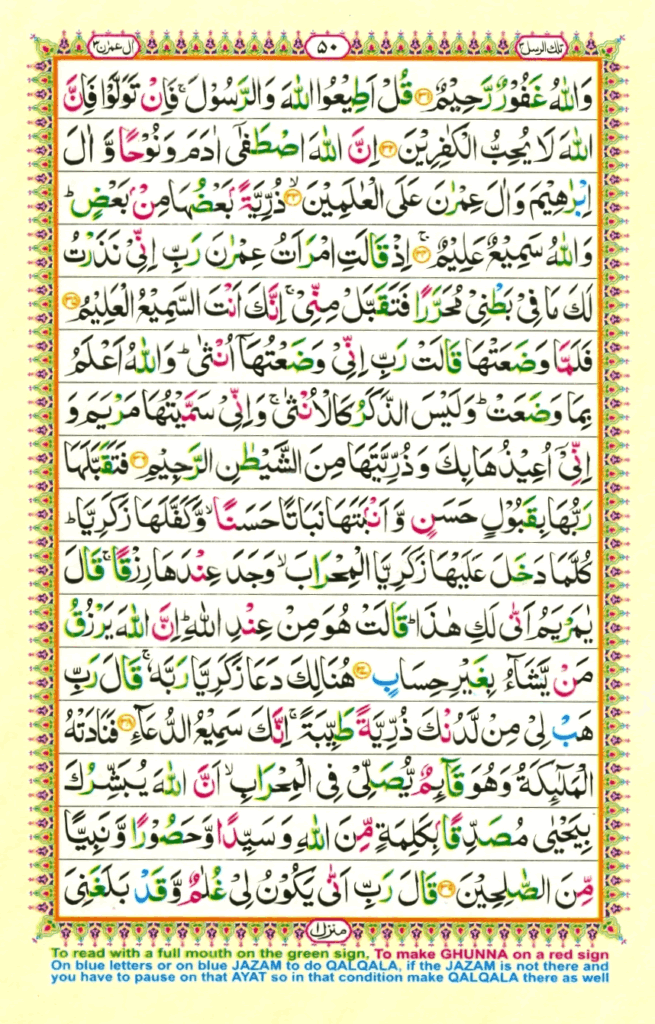 تلك الرسل ٣ ۵۰ ال عمرٰن ٣
وَاللّٰهُ غَفُوْرٌ رَّحِيْمٌ ﴿۳۱﴾ قُلْ اَطِيْعُوا اللّٰهَ وَالرَّسُوْلَ ۚ فَاِنْ تَوَلَّوْا فَاِنَّ
اللّٰهَ لَا يُحِبُّ الْكٰفِرِيْنَ ﴿۳۲﴾ اِنَّ اللّٰهَ اصْطَفٰٓى اٰدَمَ وَنُوْحًا وَّ اٰلَ
اِبْرٰهِيْمَ وَاٰلَ عِمْرٰنَ عَلَى الْعٰلَمِيْنَ ﴿۳۳﴾ ۙ ذُرِّيَّةًۢ بَعْضُهَا مِنْۢ بَعْضٍ ؕ
وَاللّٰهُ سَمِيْعٌ عَلِيْمٌ ﴿۳۴﴾ ۚ اِذْ قَالَتِ امْرَاَتُ عِمْرٰنَ رَبِّ اِنِّيْ نَذَرْتُ
لَكَ مَا فِيْ بَطْنِيْ مُحَرَّرًا فَتَقَبَّلْ مِنِّيْ ۚ اِنَّكَ اَنْتَ السَّمِيْعُ الْعَلِيْمُ ﴿۳۵﴾
فَلَمَّا وَضَعَتْهَا قَالَتْ رَبِّ اِنِّيْ وَضَعْتُهَاۤ اُنْثٰى ؕ وَاللّٰهُ اَعْلَمُ
بِمَا وَضَعَتْ ؕ وَلَيْسَ الذَّكَرُ كَالْاُنْثٰى ۚ وَاِنِّيْ سَمَّيْتُهَا مَرْيَمَ وَ
اِنِّيْۤ اُعِيْذُهَا بِكَ وَذُرِّيَّتَهَا مِنَ الشَّيْطٰنِ الرَّجِيْمِ ﴿۳۶﴾ فَتَقَبَّلَهَا
رَبُّهَا بِقَبُوْلٍ حَسَنٍ وَّ اَنْۢبَتَهَا نَبَاتًا حَسَنًا ۙ وَّكَفَّلَهَا زَكَرِيَّا ؕ
كُلَّمَا دَخَلَ عَلَيْهَا زَكَرِيَّا الْمِحْرَابَ ۙ وَجَدَ عِنْدَهَا رِزْقًا ۚ قَالَ
يٰمَرْيَمُ اَنّٰى لَكِ هٰذَا ؕ قَالَتْ هُوَ مِنْ عِنْدِ اللّٰهِ ؕ اِنَّ اللّٰهَ يَرْزُقُ
مَنْ يَّشَآءُ بِغَيْرِ حِسَابٍ ﴿۳۷﴾ هُنَالِكَ دَعَا زَكَرِيَّا رَبَّهٗ ۚ قَالَ رَبِّ
هَبْ لِيْ مِنْ لَّدُنْكَ ذُرِّيَّةً طَيِّبَةً ۚ اِنَّكَ سَمِيْعُ الدُّعَآءِ ﴿۳۸﴾ فَنَادَتْهُ
الْمَلٰٓئِكَةُ وَهُوَ قَآئِمٌ يُّصَلِّيْ فِى الْمِحْرَابِ ۙ اَنَّ اللّٰهَ يُبَشِّرُكَ
بِيَحْيٰى مُصَدِّقًۢا بِكَلِمَةٍ مِّنَ اللّٰهِ وَسَيِّدًا وَّحَصُوْرًا وَّنَبِيًّا
مِّنَ الصّٰلِحِيْنَ ﴿۳۹﴾ قَالَ رَبِّ اَنّٰى يَكُوْنُ لِيْ غُلٰمٌ وَّقَدْ بَلَغَنِيَ
منزل ١
To read with a full mouth on the green sign, To make GHUNNA on a red sign
On blue letters or on blue JAZAM to do QALQALA, if the JAZAM is not there and
you have to pause on that AYAT so in that condition make QALQALA there as well